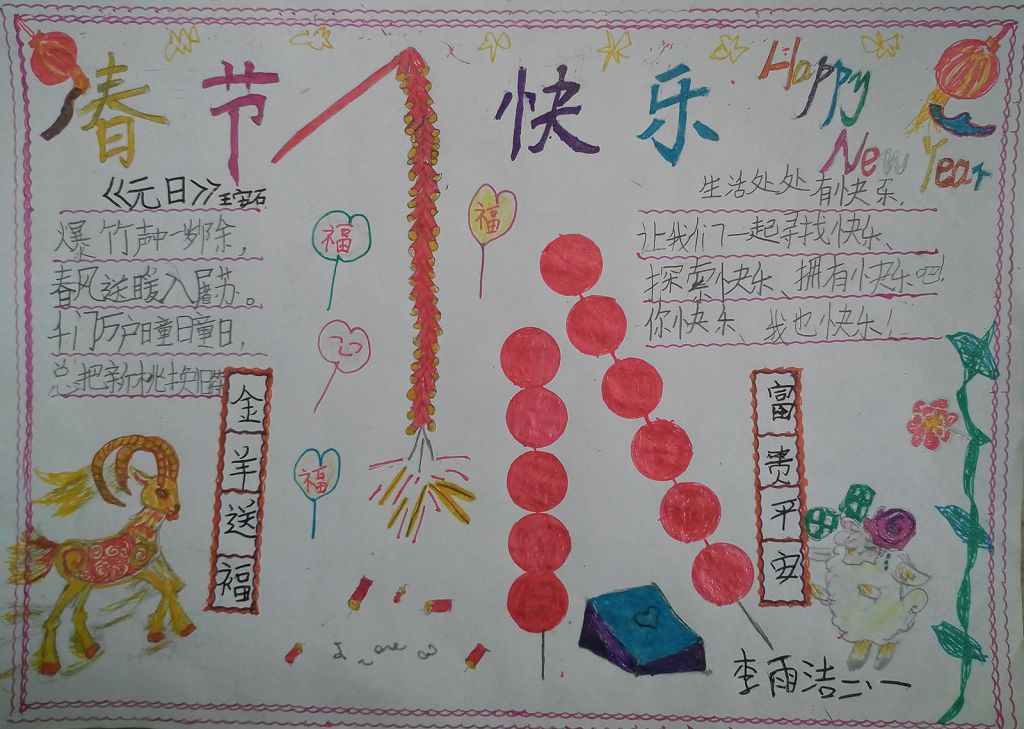 春节快乐
Happy
New Year
《元日》王安石
爆竹声中一岁除，
春风送暖入屠苏。
千门万户曈曈日，
总把新桃换旧符
生活处处有快乐，
让我们一起寻找快乐、
探索快乐、拥有快乐吧！
你快乐、我也快乐！
福
福
福
金羊送福
富贵平安
李雨洁二、一